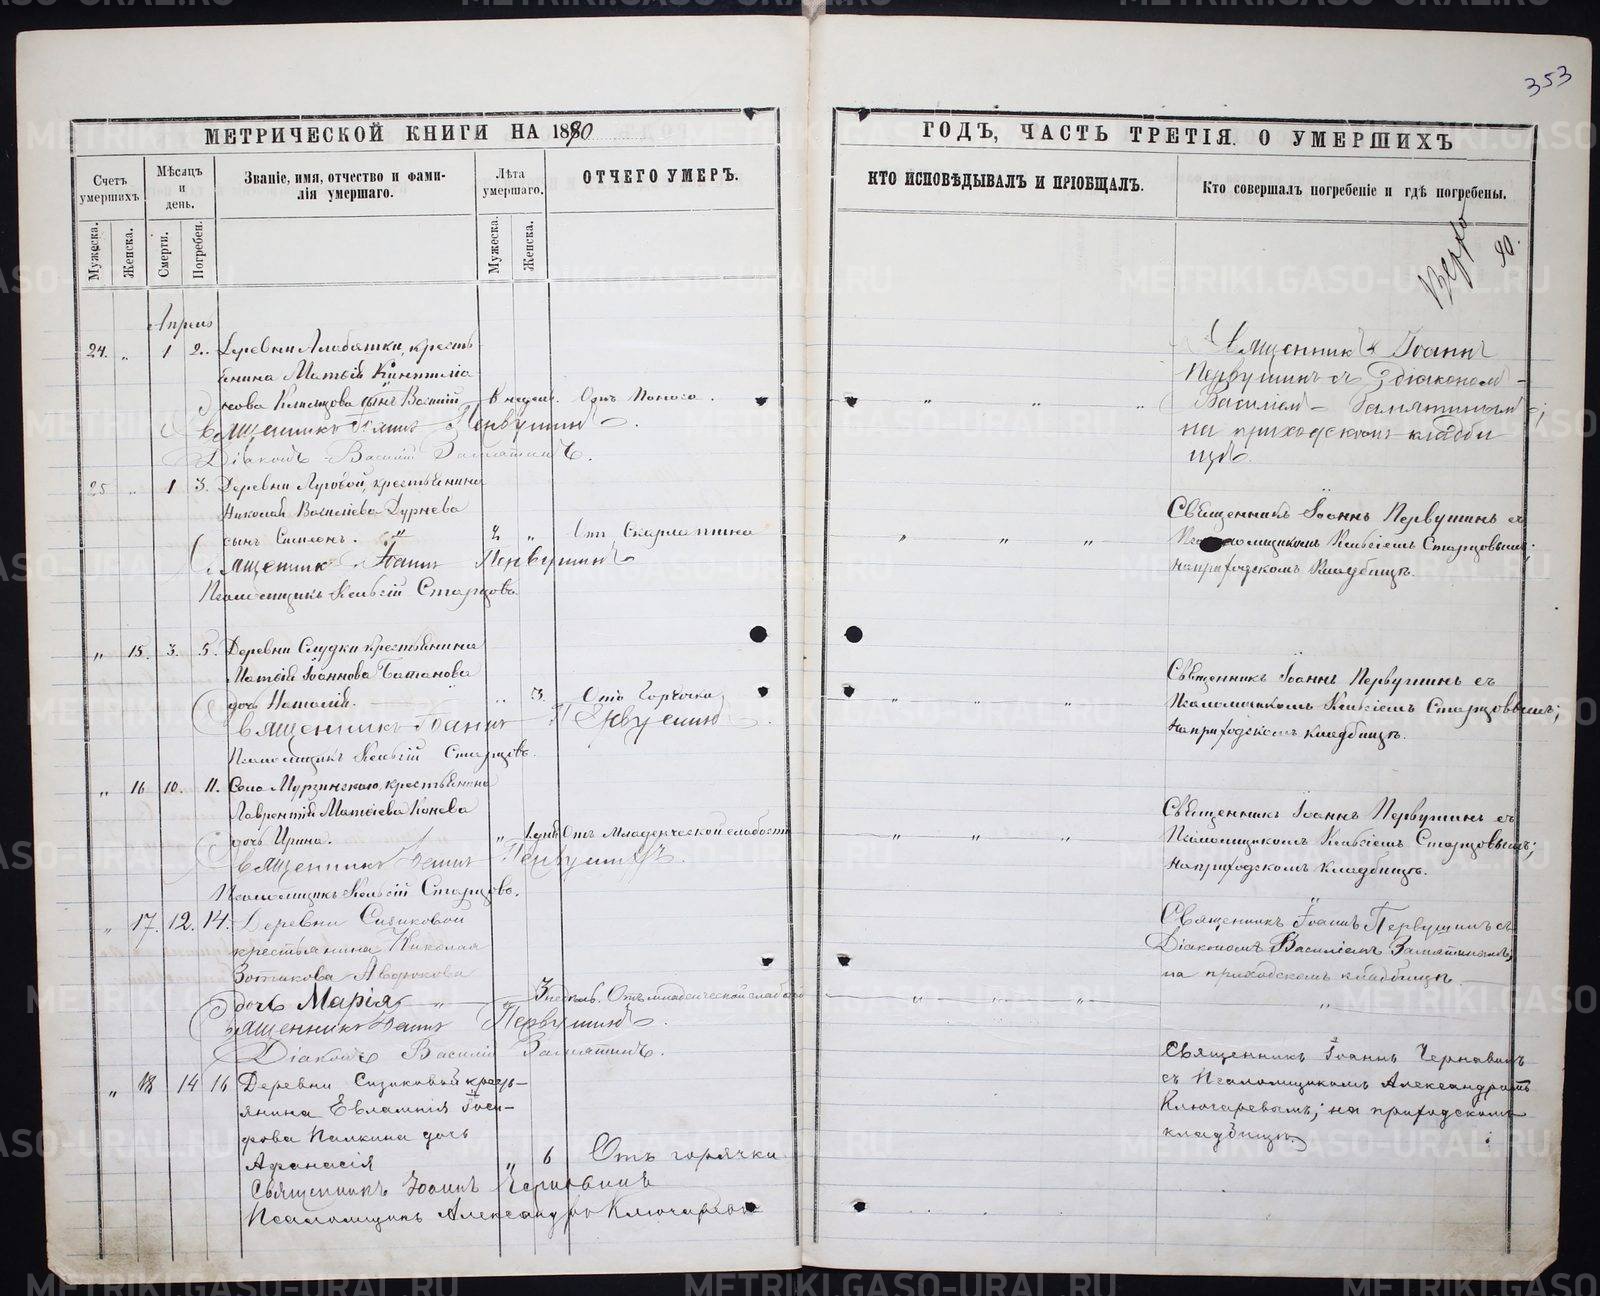 353
МЕТРИЧЕСКОЙ КНИГИ НА 1890
ГОДЪ, ЧАСТЬ ТРЕТІЯ. О УМЕРШИХЪ
Счетъ умершихъ
Мѣсяцъ и день.
Званіе, имя, отчество и фами-
лія умершаго.
Лѣта умершаго.
ОТЧЕГО УМЕРЪ.
КТО ИСПОВѢДЫВАЛЪ И ПРІОБЩАЛЪ.
Кто совершалъ погребеніе и гдѣ погребены.
Мужеска.
Женска.
Смерти.
Погребен.
Мужеска.
Женска.
90.
Апрель
24. „ 1 2. Деревни Алабашки, кресть
янина Матѳія
Климцова сынъ Василій 6 недел. Отъ Поноса.
Священникъ Іоаннъ Первушинъ.
Діаконъ Василій Замятинъ.
Священникъ Іоаннъ
Первушинъ съ діакономъ
Василіемъ Замятинымъ;
на приходскомъ кладби
щѣ.
25 „ 1 3. Деревни Луговой, крестьянина
Николая Василіева Дурнева
сынъ Симеонъ. 2 „ Отъ Скарлатина
Священникъ Іоаннъ Первушинъ
Псаломщикъ Старцовъ
Священникъ Іоаннъ Первушинъ съ
Старцовымъ;
на приходскомъ кладбищѣ.
„ 15. 3. 5. Деревни Слудки крестьянина
Матѳія Іоаннова Батанова
дочь Наталія. „ 3 Отъ Горячки
Священникъ Іоаннъ Первушинъ.
Псаломщикъ Старцовъ.
Священникъ Іоаннъ Первушинъ съ
Псаломщикомъ Старцовымъ;
на приходскомъ кладбищѣ.
„ 16 10. 11. Села Мурзинскаго, крестьянина
Лаврентія Матѳіева Конева
дочь Ирина. „ 1 дня Отъ Младенческой слабости
Священникъ Іоаннъ Первушинъ.
Псаломщикъ Старцовъ.
Священникъ Іоаннъ Первушинъ съ
Псаломщикомъ Старцовымъ;
на приходскомъ кладбищѣ.
„ 17. 12. 14. Деревни Сизиковой
крестьянина Николая
Зотикова Авдюкова
дочь Марія „ 3 недѣль. Отъ младенческой слабости
Священникъ Іоаннъ Первушинъ.
Діаконъ Василій Замятинъ.
Священникъ Іоаннъ Первушинъ съ
Діакономъ Василіемъ Замятинымъ;
на приходскомъ кладбищѣ.
„ 18 14 16 Деревни Сизиковой кресть-
янина Евлампія Іоси-
фова Палкина дочь
Аѳанасія „ 6 Отъ горячки
Священникъ Іоаннъ Чернавинъ
Псаломщикъ Александръ Ключаревъ
Священникъ Іоаннъ Чернавинъ
съ Псаломщикомъ Александромъ
Ключаревымъ; на приходскомъ
кладбищѣ.
METRIKI.GASO-URAL.RU